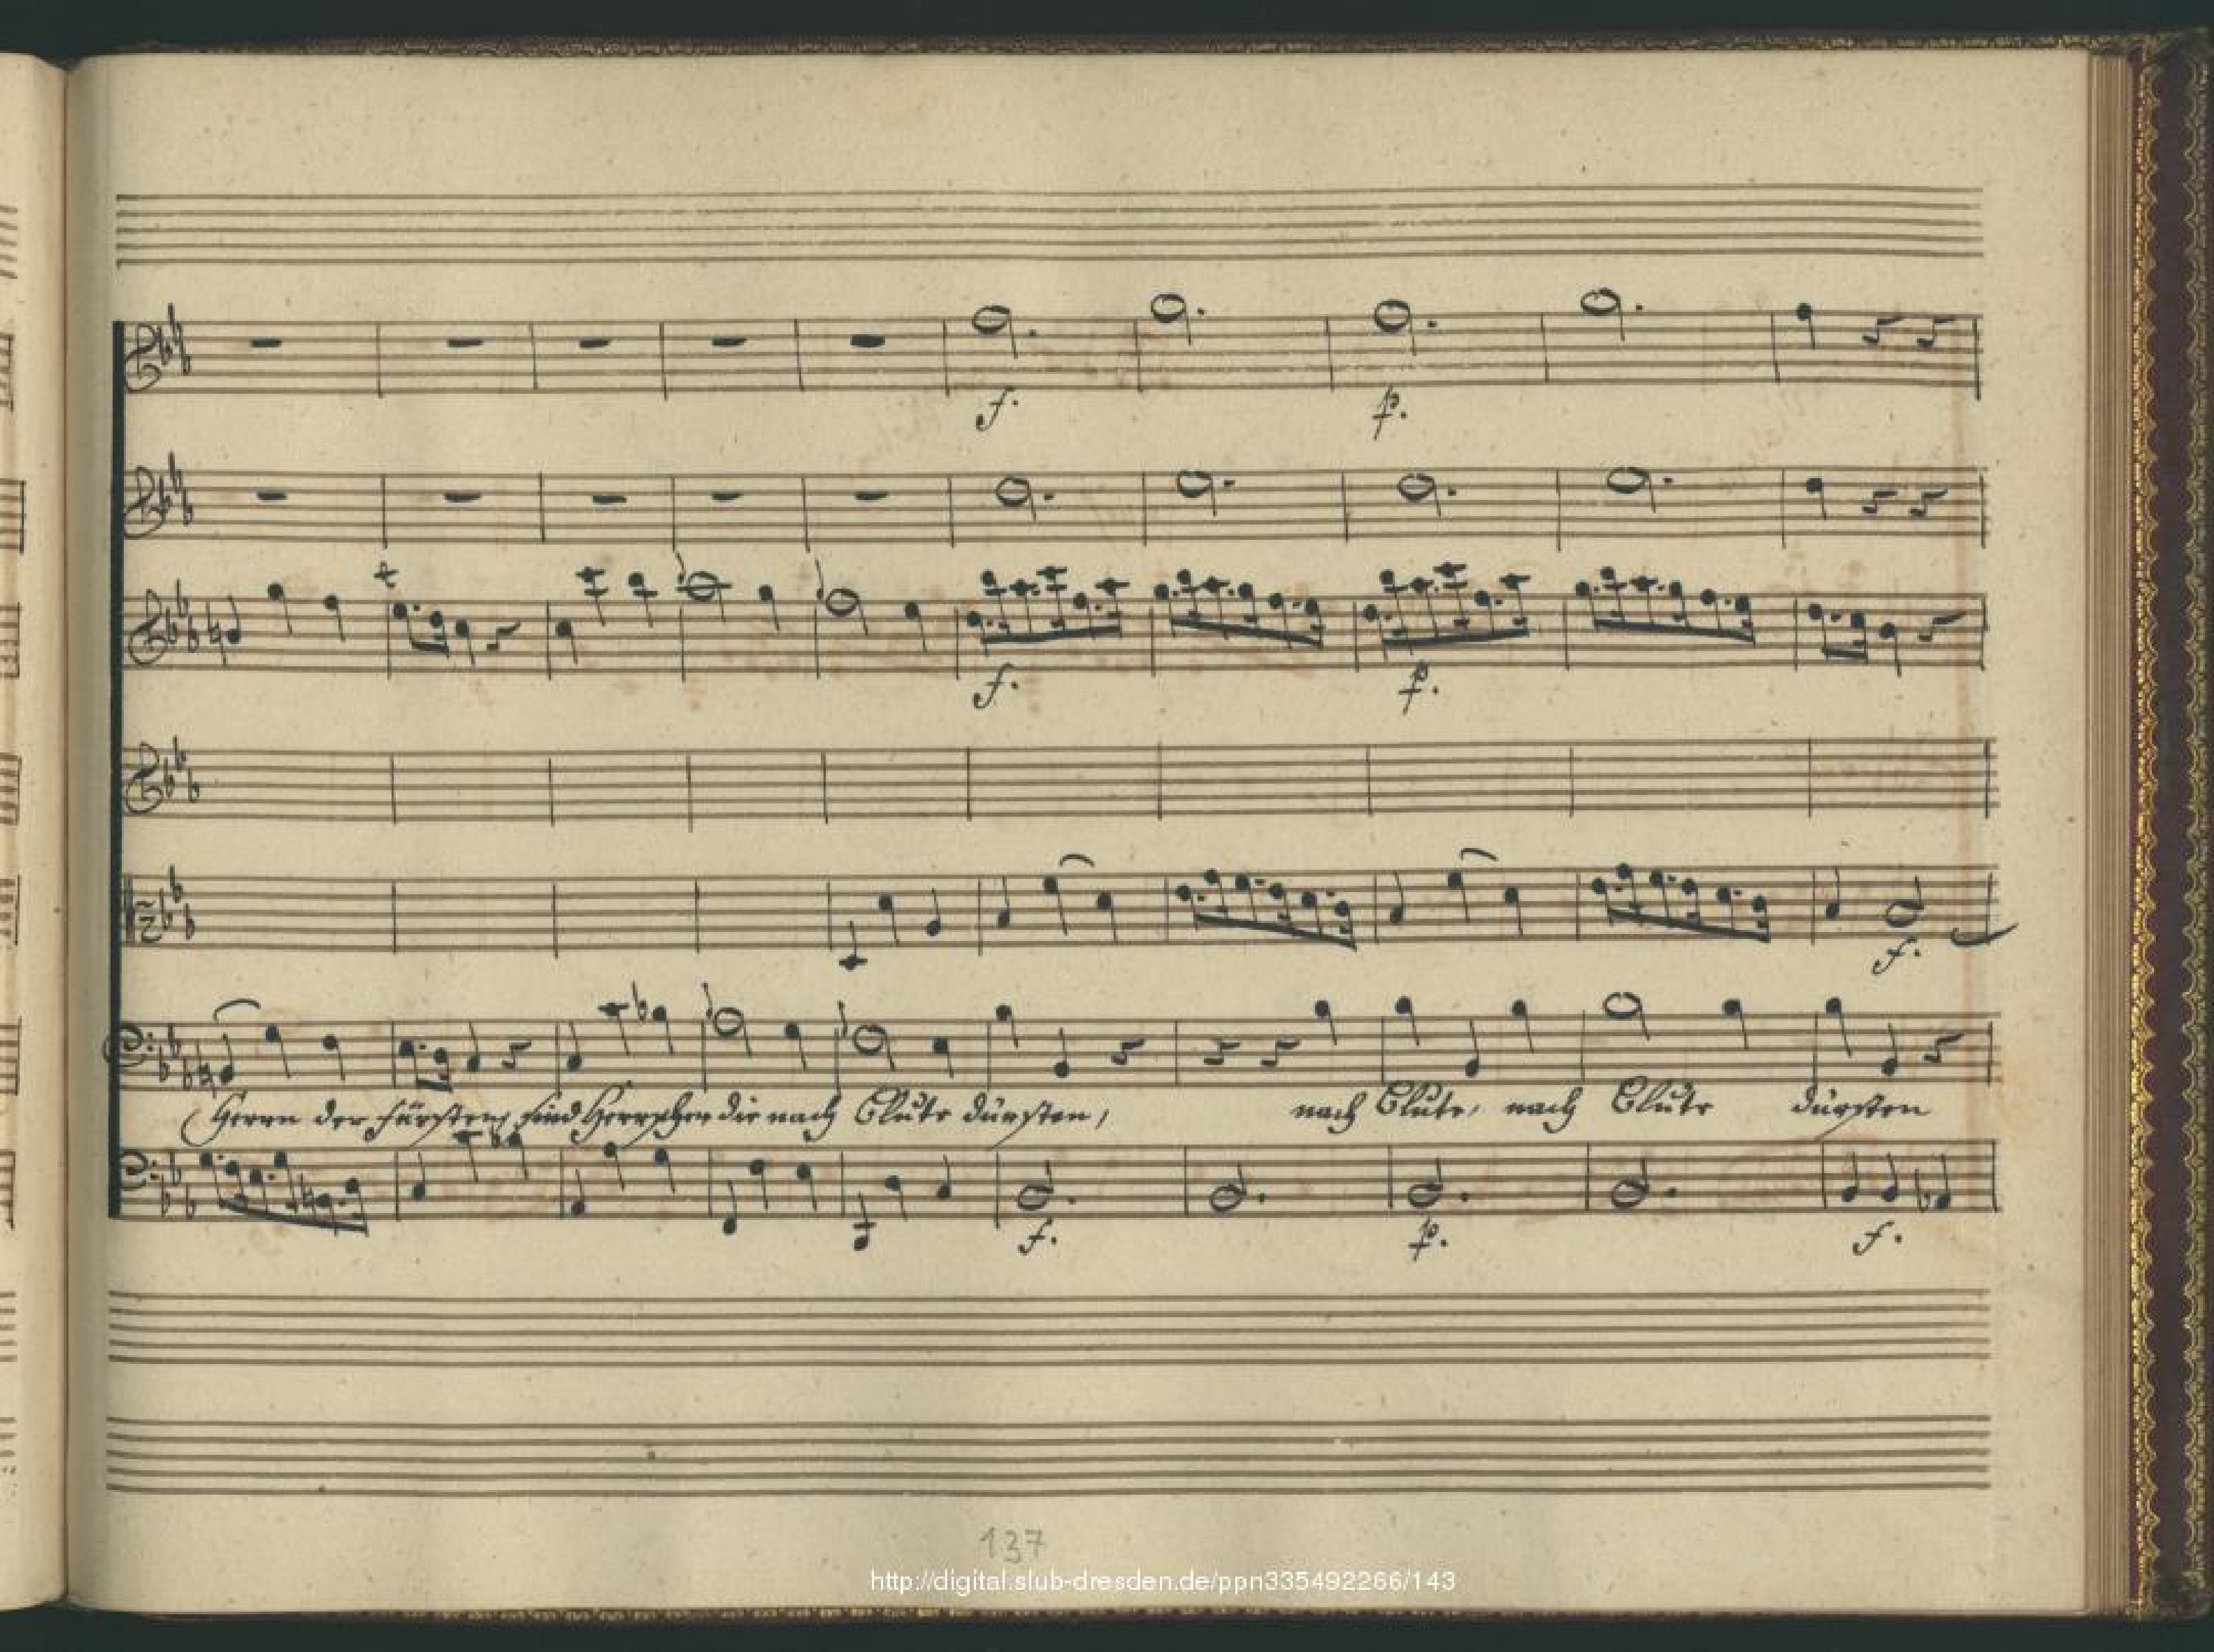 f. p.
f. p.
f.
Herrn der Fürsten, sind Herrscher die nach Blute dürsten, nach Blute, nach Blute dürsten
f. p. f.
137
http://digital.slub-dresden.de/ppn335492266/143